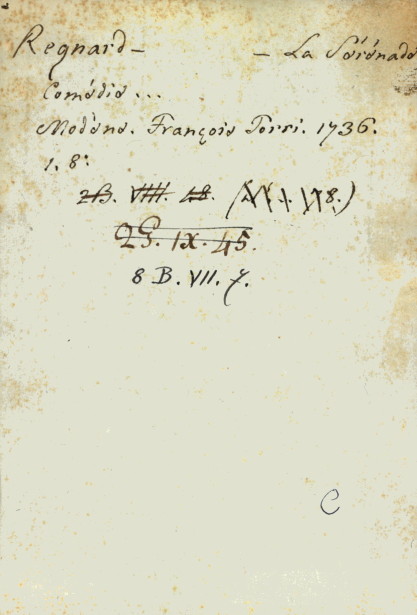 Regnard - - La Sérénade
Comédie ...
Modène. François Torri. 1736.
1. 8°.
2B. VIII. 48.
2G. IX. 45.
8 B. VII. 7.
C